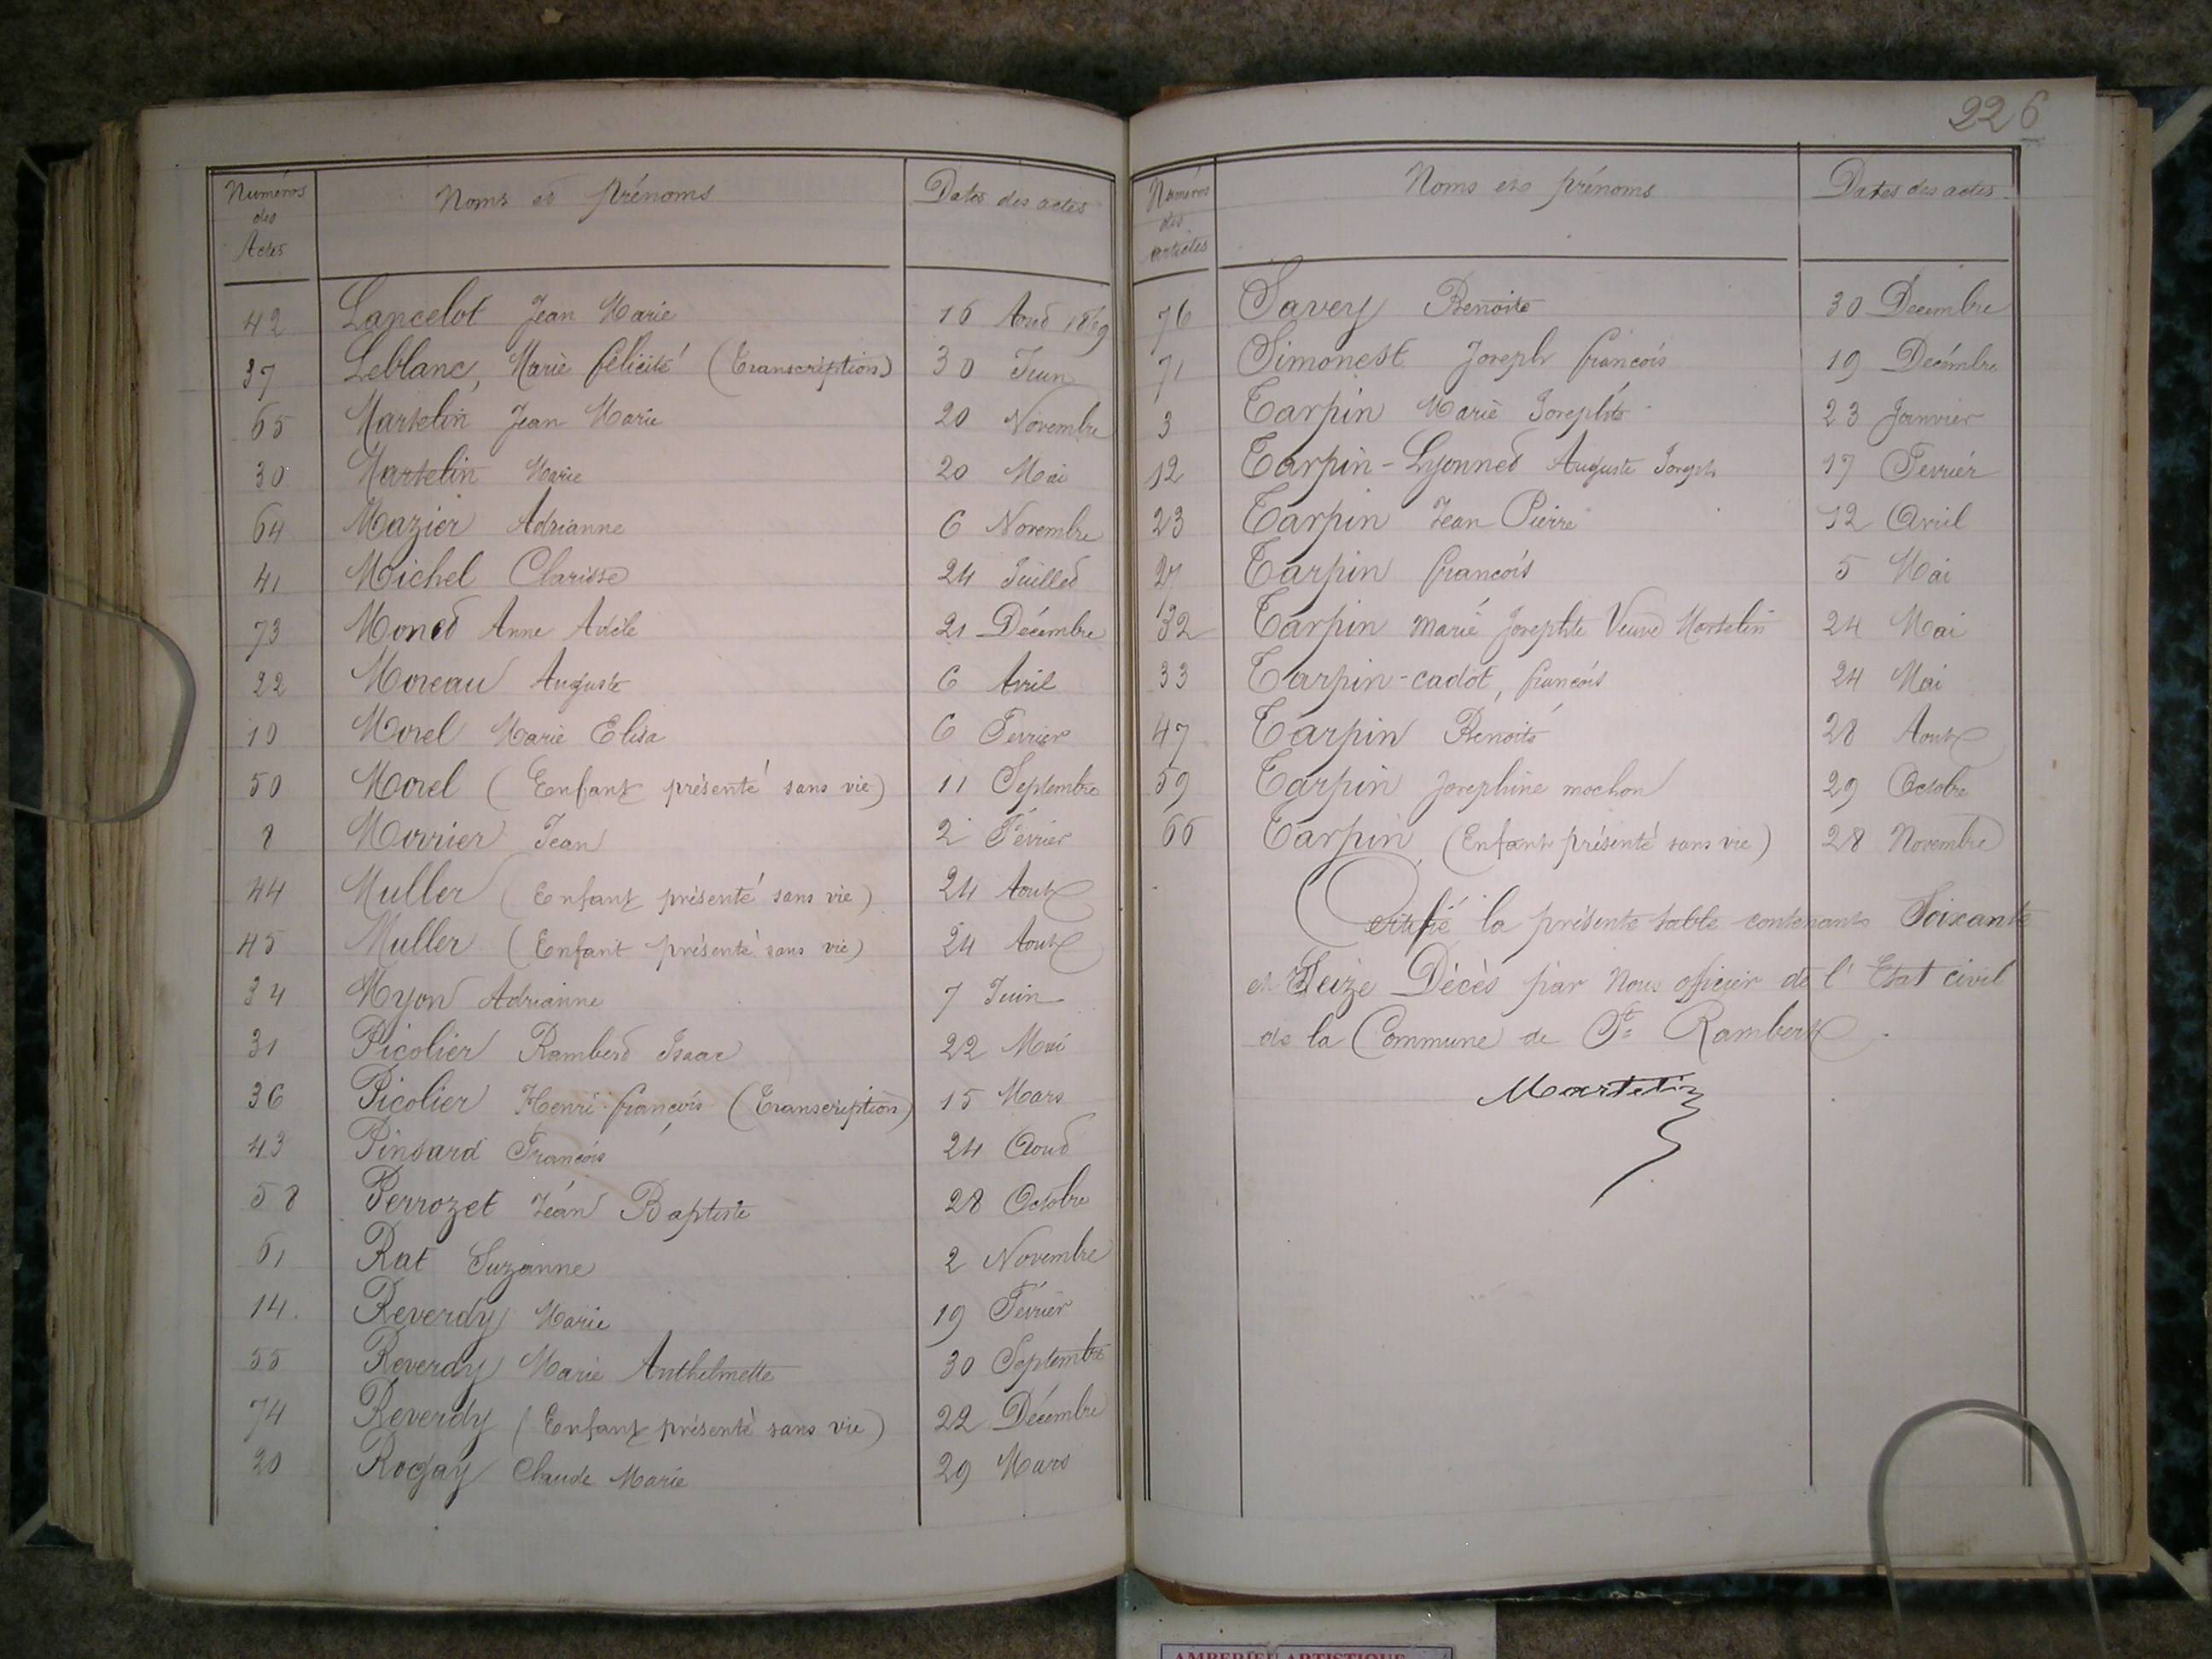 Numéros des Actes Noms et Prénoms Dates des actes
42 Lancelot Jean Marie 16 Aout 1869
37 Leblanc, Marie félicité (Transcription) 30 Juin
65 Martelin Jean Marie 20 Novembre
30 Martelin Marie 20 Mai
64 Mazier Adrianne 6 Novembre
41 Michel Clarisse 24 Juillet
73 Monet Anne Adèle 21 Décembre
22 Moreau Auguste 6 Avril
10 Morel Marie Elisa 6 Fevrier
50 Morel (Enfant présenté sans vie) 11 Septembre
8 Morrier Jean 2 Février
44 Muller (Enfant présenté sans vie) 24 Aout
45 Muller (Enfant présenté sans vie) 24 Aout
34 Myon Adrianne 7 Juin
31 Picolier Rambert Isaac 22 Mai
36 Picolier Henri françois (Transcription) 15 Mars
43 Pinsard François 24 Aout
58 Perrozet Jean Baptiste 28 Octobre
61 Rat Suzanne 2 Novembre
14. Reverdy Marie 19 Février
55 Reverdy Marie Anthelmette 30 Septembre
74 Reverdy (Enfant présenté sans vie) 22 Décembre
20 Rogay Claude Marie 29 Mars
226
Numéros des articles Noms et prénoms Dates des actes
76 Savey Benoite 30 Décembre
71 Simonest Joseph françois 19 Décembre
3 Tarpin Marie Josephte 23 Janvier
12 Tarpin-Lyonnet Auguste Joseph 17 Fevrier
23 Tarpin Jean Pierre 12 Avril
27 Tarpin françois 5 Mai
32 Tarpin marie Josephte Veuve Martelin 24 Mai
33 Tarpin-cadot, françois 24 Mai
47 Tarpin Benoite 28 Aout
59 Tarpin Josephine mochon 29 Octobre
66 Tarpin (Enfant présenté sans vie) 28 Novembre
Certifié la présente table contenant Soixante
et Seize Décès par Nous officier de l'Etat civil
de la Commune de St Rambert.
Martelin
AMBERIEU ARTISTIQUE